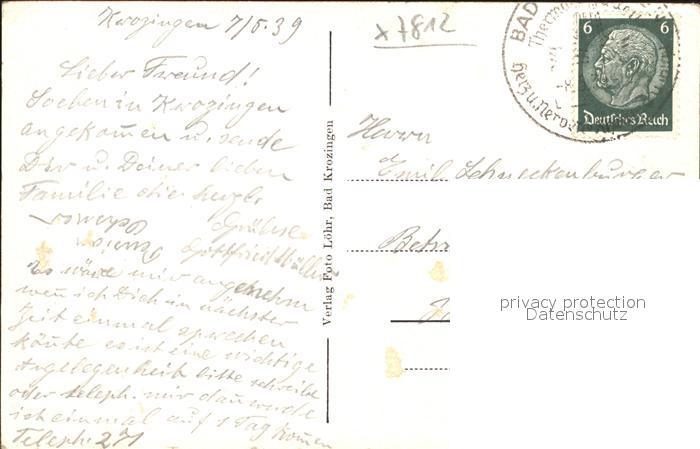 Krozingen 7/5.39
Lieber Freund!
Soeben in Krozingen
angekom̅en u. sende
Dir u. Deiner lieben
Familie die herzl.
Grüße
Gottfried Müller
Es wäre mir angenehm
wen̅ ich Dich in nächster
Zeit einmal sprechen
kön̅te es ist eine wichtige
Angelegenheit bitte schreibe
oder teleph. mir dan̅ werde
ich einmal auf 1 Tag kom̅en
Teleph. 271
Verlag Foto Löhr, Bad Krozingen
x7812
BAD
Herz u. Nerven
6 6
Deutsches Reich
Herrn
Emil Schneckenburger
privacy protection
Datenschutz